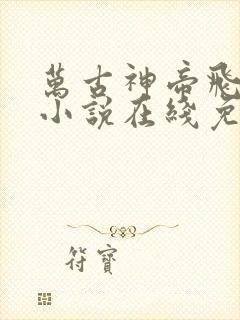 萬古神帝飛
小說在綫免
符寶